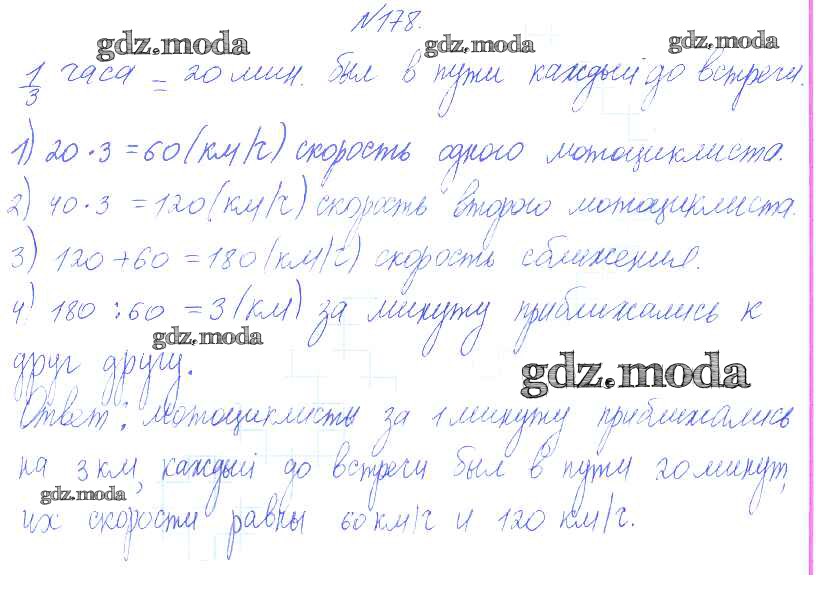 №178.
gdz.moda gdz.moda gdz.moda
1/3 часа = 20 мин. был в пути каждый до встречи.
1) 20 · 3 = 60 (км/ч) скорость одного мотоциклиста.
2) 40 · 3 = 120 (км/ч) скорость второго мотоциклиста.
3) 120 + 60 = 180 (км/ч) скорость сближения.
4) 180 : 60 = 3 (км) за минуту приближались к
gdz.moda
друг другу.
gdz.moda
Ответ: мотоциклисты за 1 минуту приближались
на 3 км, каждый до встречи был в пути 20 минут,
gdz.moda
их скорости равны 60 км/ч и 120 км/ч.